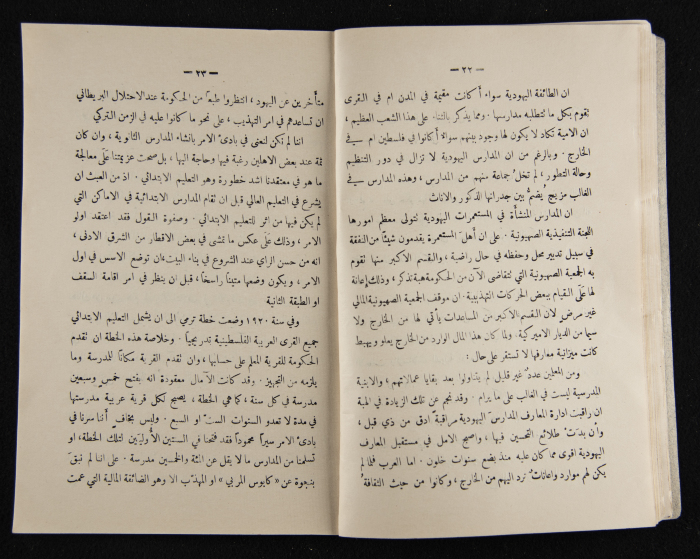 — ٢٢ —
ان الطائفة اليهودية سواء أكانت مقيمة في المدن ام في القرى
تقوم بكل ما تتطلبه مدارسها . ومما يذكر بالثناء على هذا الشعب العظيم ،
ان الامية تكاد لا يكون لها وجود بينهم سواء أكانوا في فلسطين ام في
الخارج . وبالرغم من ان المدارس اليهودية لا تزال في دور التنظيم
وحالة التطور ، لم تخل جماعة منهم من المدارس ، وهذه المدارس في
الغالب مزيج يُضم بين جدرانها الذكور والاناث
ان المدارس المنشأة في المستعمرات اليهودية تتولى معظم امورها
اللجنة التنفيذية الصهيونية . على ان أهل المستعمرة يقدمون شيئًا من النفقة
في سبيل تدبير محل وحفظه في حال راضية ، والقسم الاكبر منها تقوم
به الجمعية الصهيونية التي تتقاضى الآن من الحكومة هبة تذكر ، وذلك إعانة
لها على القيام ببعض الحركات التهذيبية . ان موقف الجمعية الصهيونية المالي
غير مرض لان القسم الاكبر من المساعدات يأتي لها من الخارج ولا
سيما من الديار الاميركية . ولما كان هذا المال الوارد من الخارج يعلو ويهبط
كانت ميزانية معارفها لا تستقر على حال :
ومن المعلمين عدد غير قليل لم يتناولوا بعد بقايا عمالاتهم ، والابنية
المدرسية ليست في الغالب على ما يرام . وقد نجم عن تلك الزيادة في الهبة
ان راقبت ادارة المعارف المدارس اليهودية مراقبة ادق من ذي قبل ،
وأن بدت طلائع التحسين فيها ، واصبح الامل في مستقبل المعارف
اليهودية اقوى مما كان عليه منذ بضع سنوات خلون . اما العرب فلما لم
يكن لهم موارد واعانات ترد اليهم من الخارج ، وكانوا من حيث الثقافة
— ٢٣ —
متأخرين عن اليهود ، انتظروا طبعًا من الحكومة عند الاحتلال البريطاني
ان تساعدهم في امر التهذيب ، على نحو ما كانوا عليه في الزمن التركي
اننا لم نكن لنعنى في بادئ الامر بانشاء المدارس الثانوية ، وان كان
ثمة عند بعض الاهلين رغبة فيها وحاجة اليها ، بل صحت عزيمتنا على معالجة
ما هو في معتقدنا اشد خطورة وهو التعليم الابتدائي . اذ من العبث ان
يشرع في التعليم العالي قبل ان تقام المدارس الابتدائية في الاماكن التي
لم يكن فيها من اثر للتعليم الابتدائي . وصفوة القول فقد اعتقد اولو
الامر ، وذلك على عكس ما تمشى في بعض الاقطار من الشرق الادنى ،
انه من حسن الرأي عند الشروع في بناء البيت ان توضع الاسس في اول
الامر ، ويكون وضعها متينًا راسخًا ، قبل ان ينظر في امر اقامة السقف
او الطبقة الثانية
وفي سنة ١٩٢٠ وضعت خطة ترمي الى ان يشمل التعليم الابتدائي
جميع القرى العربية الفلسطينية تدريجيًا . وخلاصة هذه الخطة ان تقدم
الحكومة للقرية المعلم على حسابها ، وان تقدم القرية مكانًا للمدرسة وما
يلزمه من التجهيز . وقد كانت الآمال معقودة انه بفتح خمس وسبعين
مدرسة في كل سنة ، كما هي الخطة ، يصبح لكل قرية عربية مدرستها
في مدة لا تعدو السنوات الست او السبع . وليس بخاف أننا سرنا في
بادئ الامر سيرًا محمودًا فقد فتحنا في السنتين الأوليين لتلك الخطة ، او
تسلمنا من المدارس ما لا يقل عن المئة والخمسين مدرسة . على اننا لم نبق
بنجوة عن « كابوس المربي » او المهذب الا وهو الضائقة المالية التي عمت